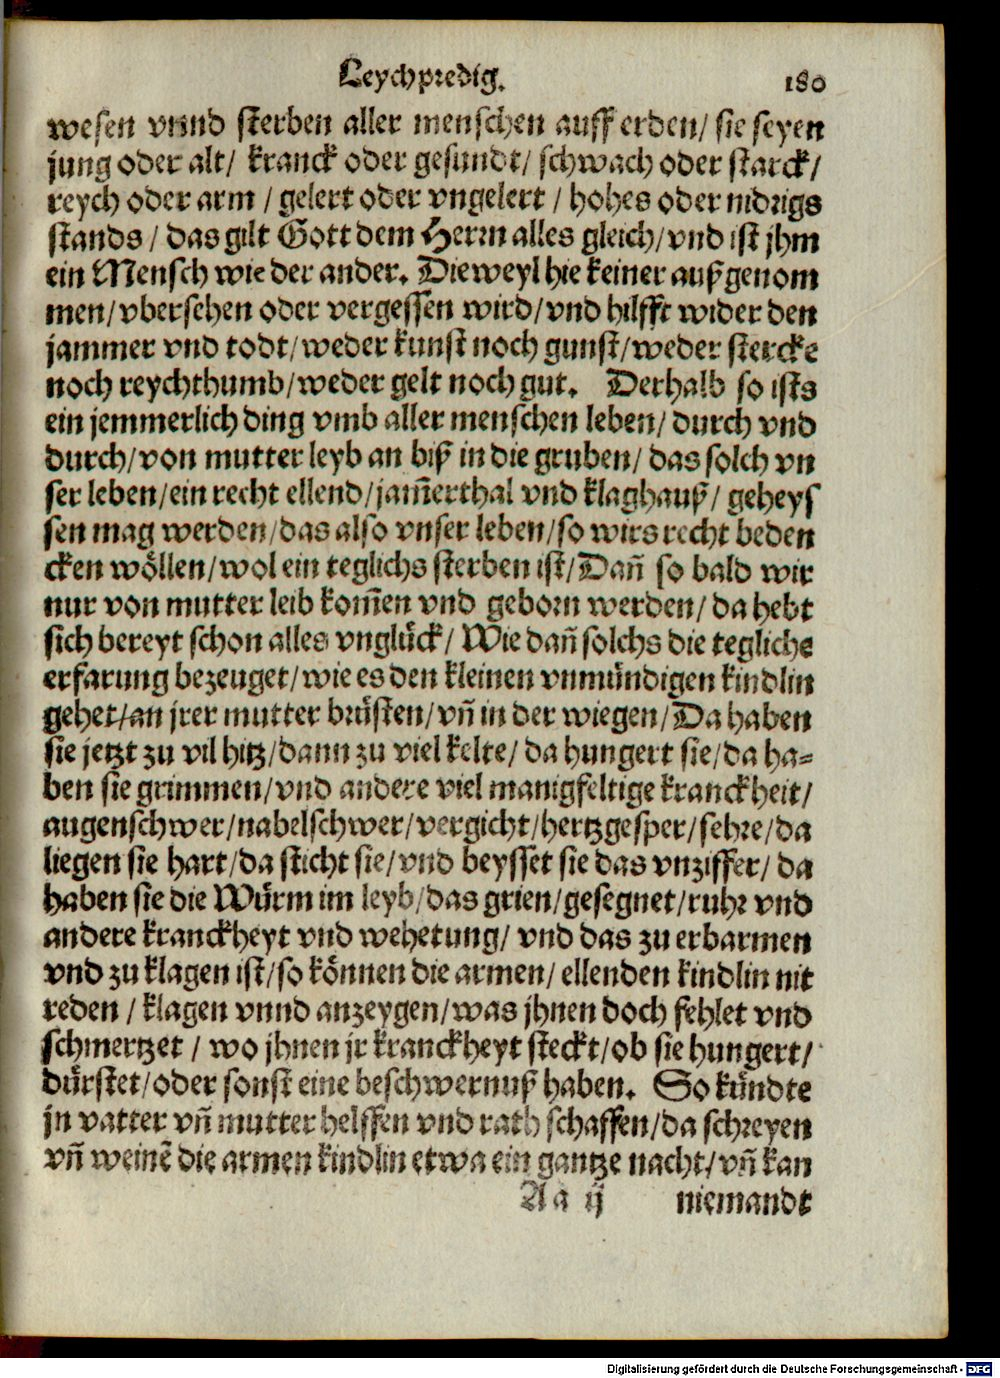 Leychpredig. 180
wesen vnnd sterben aller menschen auff erden/ sie seyen
jung oder alt/ kranck oder gesundt/ schwach oder starck/
reych oder arm / gelert oder vngelert / hohes oder nidrigs
stands / das gilt Gott dem Herrn alles gleich/ vnd ist jhm
ein Mensch wie der ander. Dieweyl hie keiner außgenom
men/ vbersehen oder vergessen wird/ vnd hilfft wider den
jammer vnd todt/ weder kunst noch gunst/ weder stercke
noch reychthumb/ weder gelt noch gut. Derhalb so ists
ein jemmerlich ding vmb aller menschen leben/ durch vnd
durch/ von mutter leyb an biß in die gruben/ das solch vn
ser leben/ ein recht ellend/ jam̃erthal vnd klaghauß/ geheys
sen mag werden/ das also vnser leben/ so wirs recht beden
cken wöllen/ wol ein teglichs sterben ist/ Dañ so bald wir
nur von mutter leib kom̃en vnd geborn werden/ da hebt
sich bereyt schon alles vnglück/ Wie dañ solchs die tegliche
erfarung bezeuget/ wie es den kleinen vnmündigen kindlin
gehet/ an jrer mutter brüsten/ vñ in der wiegen/ Da haben
sie jetzt zu vil hitz/ dann zu viel kelte/ da hungert sie/ da ha-
ben sie grimmen/ vnd andere viel manigfeltige kranckheit/
augenschwer/ nabelschwer/ vergicht/ hertzgesper/ sehre/ da
liegen sie hart/ da sticht sie/ vnd beysset sie das vnziffer/ da
haben sie die Würm im leyb/ das grien/ gesegnet/ ruhr vnd
andere kranckheyt vnd wehetung/ vnd das zu erbarmen
vnd zu klagen ist/ so können die armen/ ellenden kindlin nit
reden / klagen vnnd anzeygen/ was jhnen doch fehlet vnd
schmertzet / wo jhnen jr kranckheyt steckt/ ob sie hungert/
dürstet/ oder sonst eine beschwernuß haben. So kündte
jn vatter vñ mutter helffen vnd rath schaffen/ da schreyen
vñ weinẽ die armen kindlin etwa ein gantze nacht/ vñ kan
Aa ij niemandt
Digitalisierung gefördert durch die Deutsche Forschungsgemeinschaft - DFG